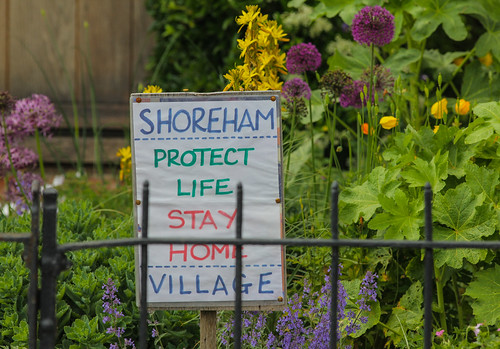 SHOREHAM
PROTECT
LIFE
STAY
HOME
VILLAGE